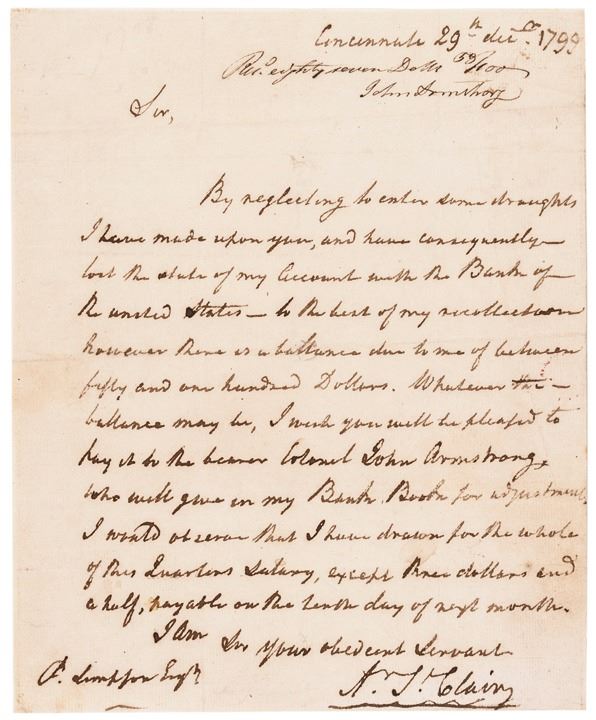 Cincinnati 29th decr. 1799
Recd. eighty seven Dolls 59/100
John Armstrong
Sir,
By neglecting to enter some draughts
I have made upon you, and have consequently
lost the state of my Account with the Bank of
the united States — to the best of my recollection
however there is a ballance due to me of between
fifty and one hundred Dollars. Whatever the
ballance may be, I wish you will be pleased to
pay it to the bearer Colonel John Armstrong,
who will give in my Bank Book for adjustment.
I would observe that I have drawn for the whole
of this Quarters Salary, except three dollars and
a half, payable on the tenth day of next month.
I am
Sir your obedient Servant
Ar. St. Clair
P. Simpson Esqr.